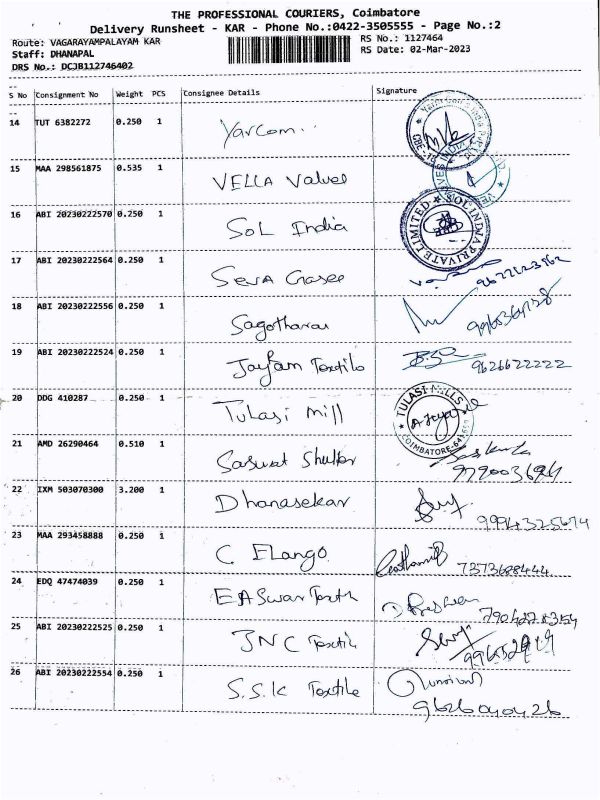 THE PROFESSIONAL COURIERS, Coimbatore
Delivery Runsheet - KAR - Phone No.:0422-3505555 - Page No.:2
Route: VAGARAYAMPALAYAM KAR
RS No.: 1127464
Staff: DHANAPAL
RS Date: 02-Mar-2023
DRS No.: DCJB112746402
S No Consignment No Weight PCS Consignee Details Signature
14 TUT 6382272 0.250 1 Yarcom
15 MAA 298561875 0.535 1 VELLA Valves
16 ABI 20230222570 0.250 1 SOL India
SOL INDIA PRIVATE LIMITED
17 ABI 20230222564 0.250 1
18 ABI 20230222556 0.250 1
19 ABI 20230222524 0.250 1 Textile 9626622222
20 DDG 410287 0.250 1 Tulasi Mill
TULASI MILLS
COIMBATORE
21 AMD 26290464 0.510 1
22 IXM 503070300 3.200 1 Dhanasekar
23 MAA 293458888 0.250 1 C Elango 7373688444
24 EDQ 47474039 0.250 1
25 ABI 20230222525 0.250 1 JNC Textile
26 ABI 20230222554 0.250 1 S.S.K Textile
9626040426